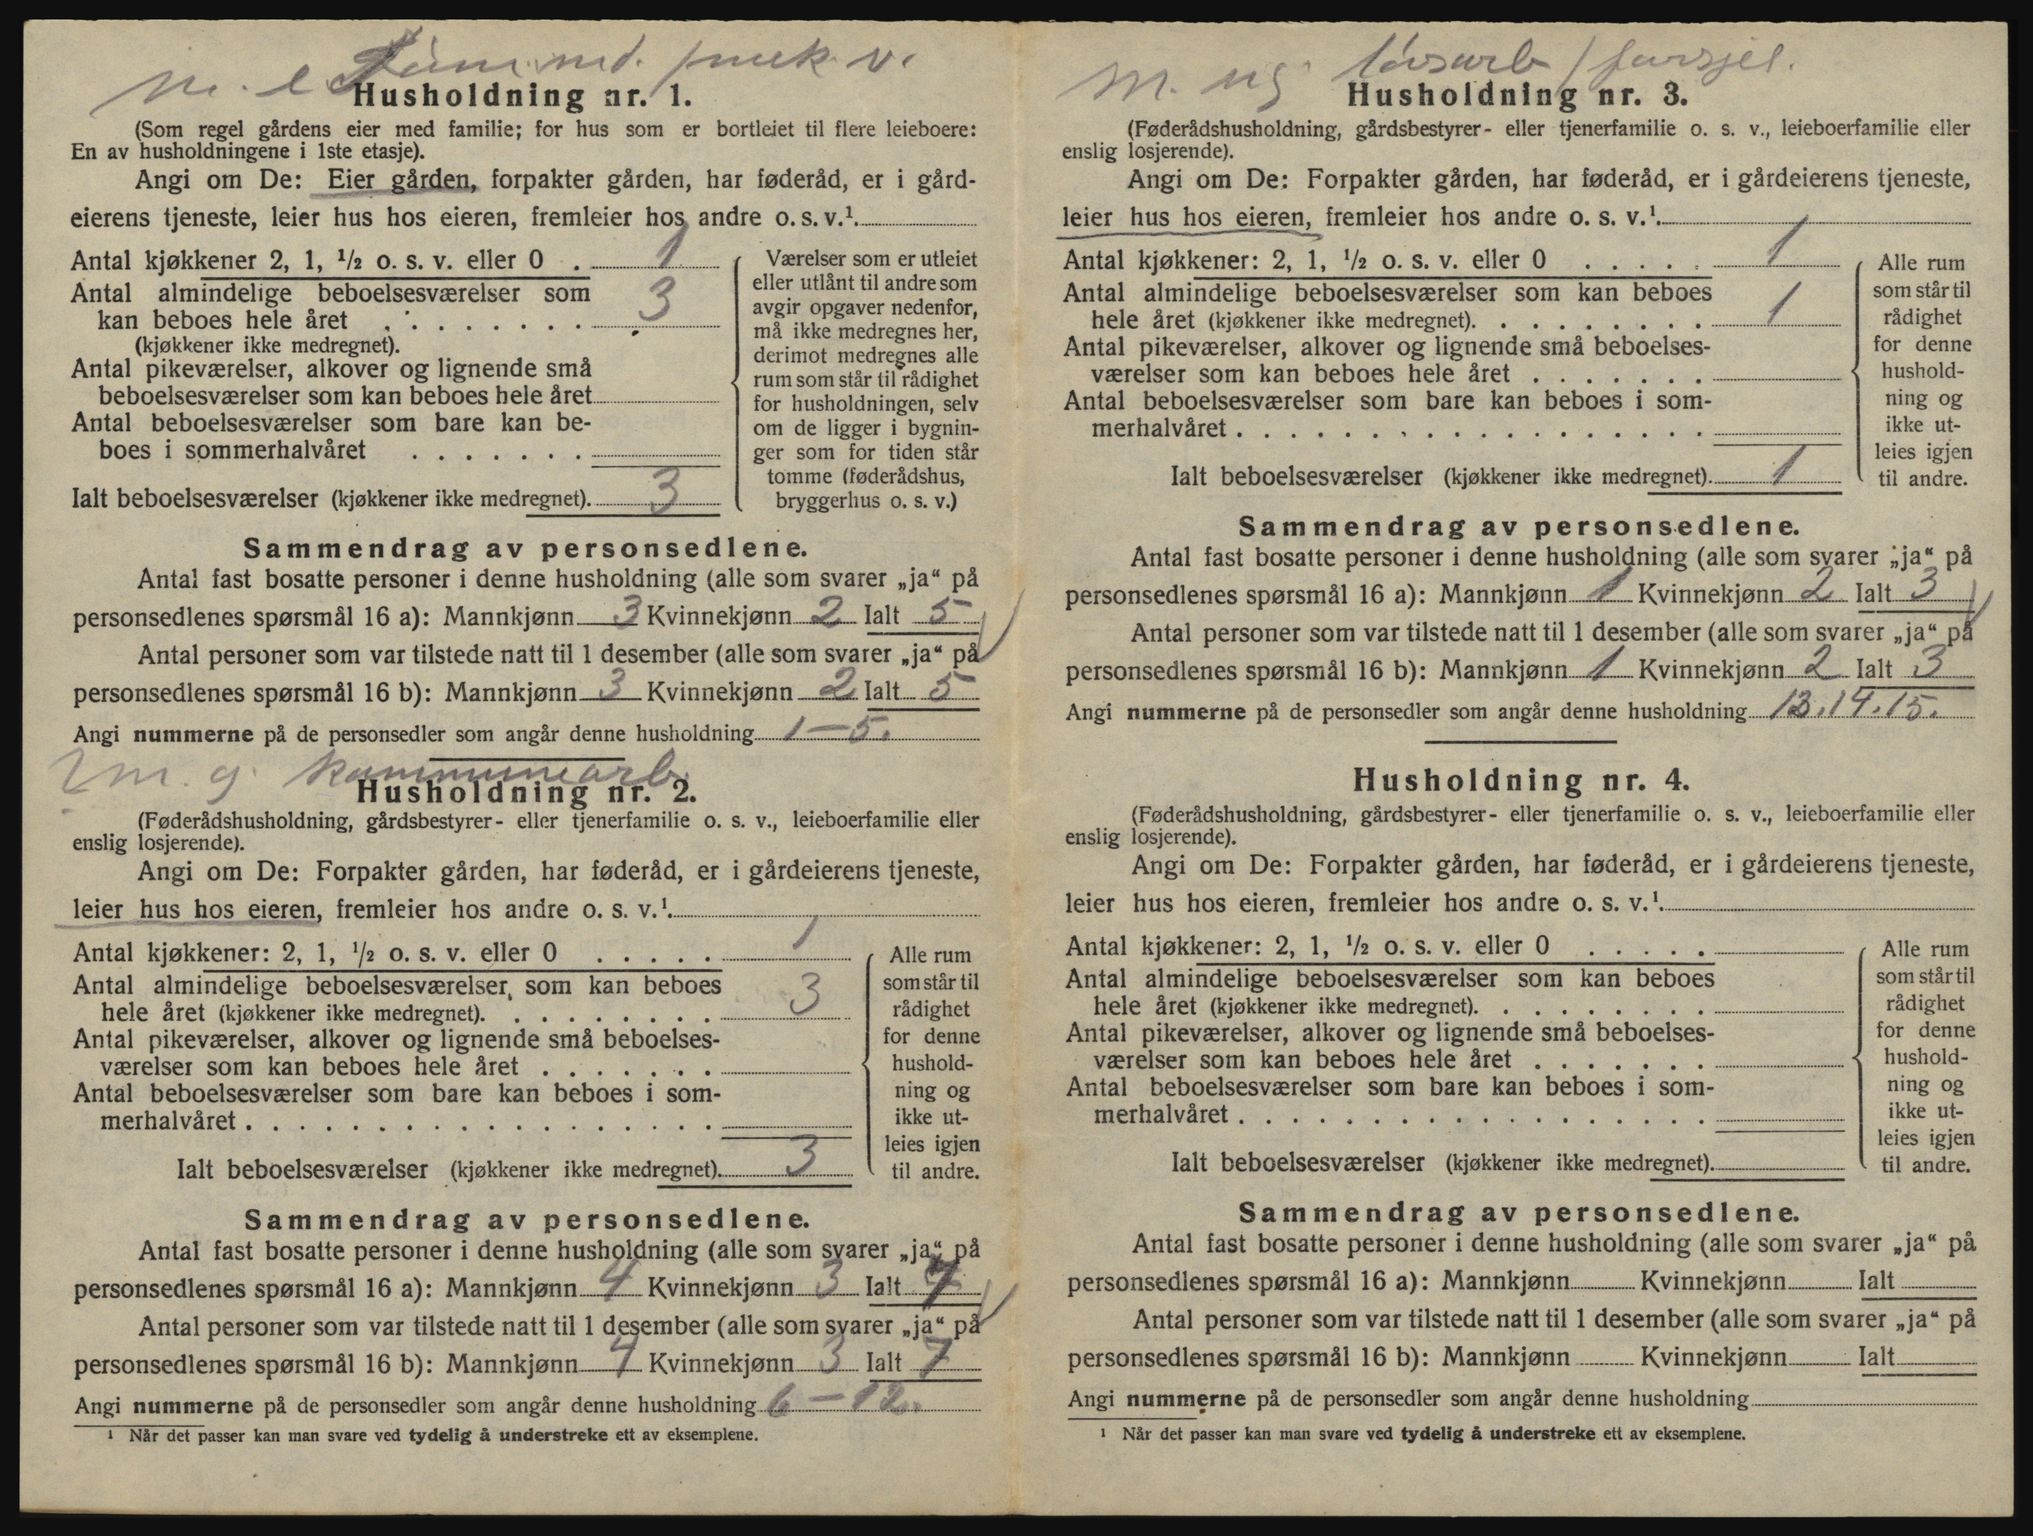 m. e
Husholdning nr. 1.
(Som regel gårdens eier med familie; for hus som er bortleiet til flere leieboere:
En av husholdningene i 1ste etasje).
Angi om De: Eier gården, forpakter gården, har føderåd, er i gård-
eierens tjeneste, leier hus hos eieren, fremleier hos andre o. s. v.¹.
Antal kjøkkener 2, 1, ½ o. s. v. eller 0 . 1
Antal almindelige beboelsesværelser som
kan beboes hele året . . . . . . . . 3
(kjøkkener ikke medregnet).
Antal pikeværelser, alkover og lignende små
beboelsesværelser som kan beboes hele året
Antal beboelsesværelser som bare kan be-
boes i sommerhalvåret . . . . . . .
Ialt beboelsesværelser (kjøkkener ikke medregnet). 3
Værelser som er utleiet
eller utlånt til andre som
avgir opgaver nedenfor,
må ikke medregnes her,
derimot medregnes alle
rum som står til rådighet
for husholdningen, selv
om de ligger i bygnin-
ger som for tiden står
tomme (føderådshus,
bryggerhus o. s. v.)
Sammendrag av personsedlene.
Antal fast bosatte personer i denne husholdning (alle som svarer „ja“ på
personsedlenes spørsmål 16 a): Mannkjønn 3 Kvinnekjønn 2 Ialt 5
Antal personer som var tilstede natt til 1 desember (alle som svarer „ja“ på
personsedlenes spørsmål 16 b): Mannkjønn 3 Kvinnekjønn 2 Ialt 5
Angi nummerne på de personsedler som angår denne husholdning 1-5.
m. g. kommunearb.
Husholdning nr. 2.
(Føderådshusholdning, gårdsbestyrer- eller tjenerfamilie o. s. v., leieboerfamilie eller
enslig losjerende).
Angi om De: Forpakter gården, har føderåd, er i gårdeierens tjeneste,
leier hus hos eieren, fremleier hos andre o. s. v.¹.
Antal kjøkkener: 2, 1, ½ o. s. v. eller 0 . . . . . 1
Antal almindelige beboelsesværelser som kan beboes
hele året (kjøkkener ikke medregnet). . . . . . . . . 3
Antal pikeværelser, alkover og lignende små beboelses-
værelser som kan beboes hele året . . . . . . .
Antal beboelsesværelser som bare kan beboes i som-
merhalvåret . . . . . . . . . . . . . . . . . .
Ialt beboelsesværelser (kjøkkener ikke medregnet). 3
Alle rum
som står til
rådighet
for denne
hushold-
ning og
ikke ut-
leies igjen
til andre.
Sammendrag av personsedlene.
Antal fast bosatte personer i denne husholdning (alle som svarer „ja“ på
personsedlenes spørsmål 16 a): Mannkjønn 4 Kvinnekjønn 3 Ialt 7
Antal personer som var tilstede natt til 1 desember (alle som svarer „ja“ på
personsedlenes spørsmål 16 b): Mannkjønn 4 Kvinnekjønn 3 Ialt 7
Angi nummerne på de personsedler som angår denne husholdning 6-12.
¹ Når det passer kan man svare ved tydelig å understreke ett av eksemplene.
m. ug løsarb /
Husholdning nr. 3.
(Føderådshusholdning, gårdsbestyrer- eller tjenerfamilie o. s. v., leieboerfamilie eller
enslig losjerende).
Angi om De: Forpakter gården, har føderåd, er i gårdeierens tjeneste,
leier hus hos eieren, fremleier hos andre o. s. v.¹.
Antal kjøkkener: 2, 1, ½ o. s. v. eller 0 . . . . . 1
Antal almindelige beboelsesværelser som kan beboes
hele året (kjøkkener ikke medregnet). . . . . . . . . 1
Antal pikeværelser, alkover og lignende små beboelses-
værelser som kan beboes hele året . . . . . . .
Antal beboelsesværelser som bare kan beboes i som-
merhalvåret . . . . . . . . . . . . . . . . . .
Ialt beboelsesværelser (kjøkkener ikke medregnet). 1
Alle rum
som står til
rådighet
for denne
hushold-
ning og
ikke ut-
leies igjen
til andre.
Sammendrag av personsedlene.
Antal fast bosatte personer i denne husholdning (alle som svarer „ja“ på
personsedlenes spørsmål 16 a): Mannkjønn 1 Kvinnekjønn 2 Ialt 3
Antal personer som var tilstede natt til 1 desember (alle som svarer „ja“ på
personsedlenes spørsmål 16 b): Mannkjønn 1 Kvinnekjønn 2 Ialt 3
Angi nummerne på de personsedler som angår denne husholdning 13.14.15.
Husholdning nr. 4.
(Føderådshusholdning, gårdsbestyrer- eller tjenerfamilie o. s. v., leieboerfamilie eller
enslig losjerende).
Angi om De: Forpakter gården, har føderåd, er i gårdeierens tjeneste,
leier hus hos eieren, fremleier hos andre o. s. v.¹.
Antal kjøkkener: 2, 1, ½ o. s. v. eller 0 . . . . .
Antal almindelige beboelsesværelser som kan beboes
hele året (kjøkkener ikke medregnet). . . . . . . . .
Antal pikeværelser, alkover og lignende små beboelses-
værelser som kan beboes hele året . . . . . . .
Antal beboelsesværelser som bare kan beboes i som-
merhalvåret . . . . . . . . . . . . . . . . . .
Ialt beboelsesværelser (kjøkkener ikke medregnet).
Alle rum
som står til
rådighet
for denne
hushold-
ning og
ikke ut-
leies igjen
til andre.
Sammendrag av personsedlene.
Antal fast bosatte personer i denne husholdning (alle som svarer „ja“ på
personsedlenes spørsmål 16 a): Mannkjønn Kvinnekjønn Ialt
Antal personer som var tilstede natt til 1 desember (alle som svarer „ja“ på
personsedlenes spørsmål 16 b): Mannkjønn Kvinnekjønn Ialt
Angi nummerne på de personsedler som angår denne husholdning
¹ Når det passer kan man svare ved tydelig å understreke ett av eksemplene.